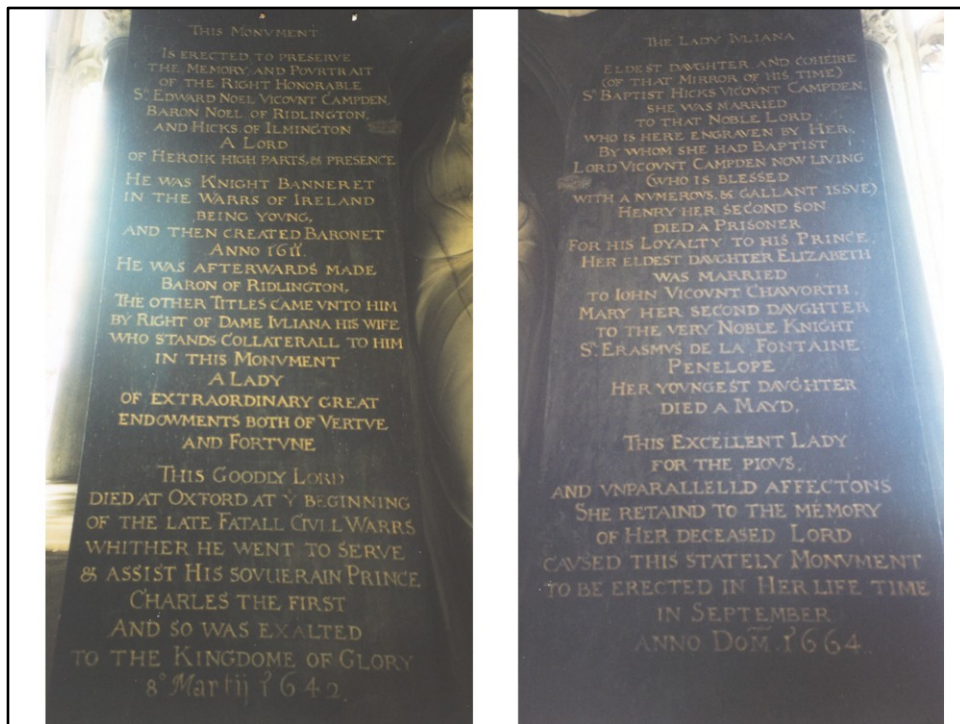 THIS MONVMENT
IS ERECTED TO PRESERVE
THE MEMORY AND POVRTRAIT
OF THE RIGHT HONORABLE
Sr. EDWARD NOEL VICOVNT CAMPDEN,
BARON NOEL OF RIDLINGTON,
AND HICKS OF ILMINGTON
A LORD
OF HEROIK HIGH PARTS, & PRESENCE
HE WAS KNIGHT BANNERET
IN THE WARRS OF IRELAND
BEING YOVNG,
AND THEN CREATED BARONET
ANNO 1611.
HE WAS AFTERWARDS MADE
BARON OF RIDLINGTON,
THE OTHER TITLES CAME VNTO HIM
BY RIGHT OF DAME IVLIANA HIS WIFE
WHO STANDS COLLATERALL TO HIM
IN THIS MONVMENT
A LADY
OF EXTRAORDINARY GREAT
ENDOWMENTS BOTH OF VERTVE
AND FORTVNE
THIS GOODLY LORD
DIED AT OXFORD AT Ye BEGINNING
OF THE LATE FATALL CIVILL WARRS
WHITHER HE WENT TO SERVE
& ASSIST HIS SOVUERAIN PRINCE
CHARLES THE FIRST
AND SO WAS EXALTED
TO THE KINGDOME OF GLORY
8º Martij 1642
THE LADY IVLIANA
ELDEST DAVGHTER AND COHEIRE
(OF THAT MIRROR OF HIS TIME)
Sr. BAPTIST HICKS VICOVNT CAMPDEN,
SHE WAS MARRIED
TO THAT NOBLE LORD
WHO IS HERE ENGRAVEN BY HER,
BY WHOM SHE HAD BAPTIST
LORD VICOVNT CAMPDEN NOW LIVING
(WHO IS BLESSED
WITH A NVMEROVS, & GALLANT ISSVE)
HENRY HER SECOND SON
DIED A PRISONER
FOR HIS LOYALTY TO HIS PRINCE,
HER ELDEST DAVGHTER ELIZABETH
WAS MARRIED
TO IOHN VICOVNT CHAWORTH,
MARY HER SECOND DAVGHTER
TO THE VERY NOBLE KNIGHT
Sr. ERASMVS DE LA FONTAINE
PENELOPE
HER YOVNGEST DAVGHTER
DIED A MAYD,
THIS EXCELLENT LADY
FOR THE PIOVS,
AND VNPARALLELLD AFFECTONS
SHE RETAIND TO THE MEMORY
OF HER DECEASED LORD
CAVSED THIS STATELY MONVMENT
TO BE ERECTED IN HER LIFE TIME
IN SEPTEMBER
ANNO DOM̄. 1664.